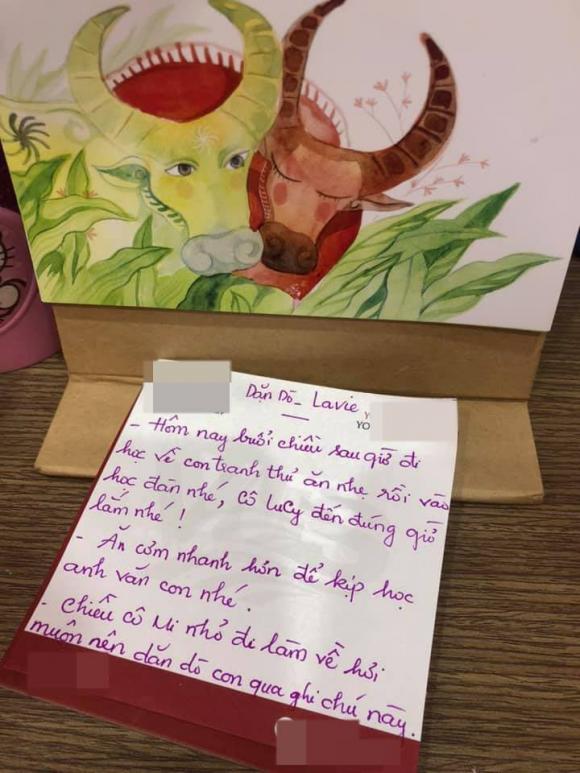 Dặn Dò - Lavie
YO
- Hôm nay buổi chiều sau giờ đi
học về con tranh thủ ăn nhẹ rồi vào
học đàn nhé, cô Lucy đến đúng giờ
lắm nhé!
- Ăn cơm nhanh hơn để kịp học
anh văn con nhé.
- Chiều cô Mi nhỏ đi làm về hơi
muộn nên dặn dò con qua ghi chú này.